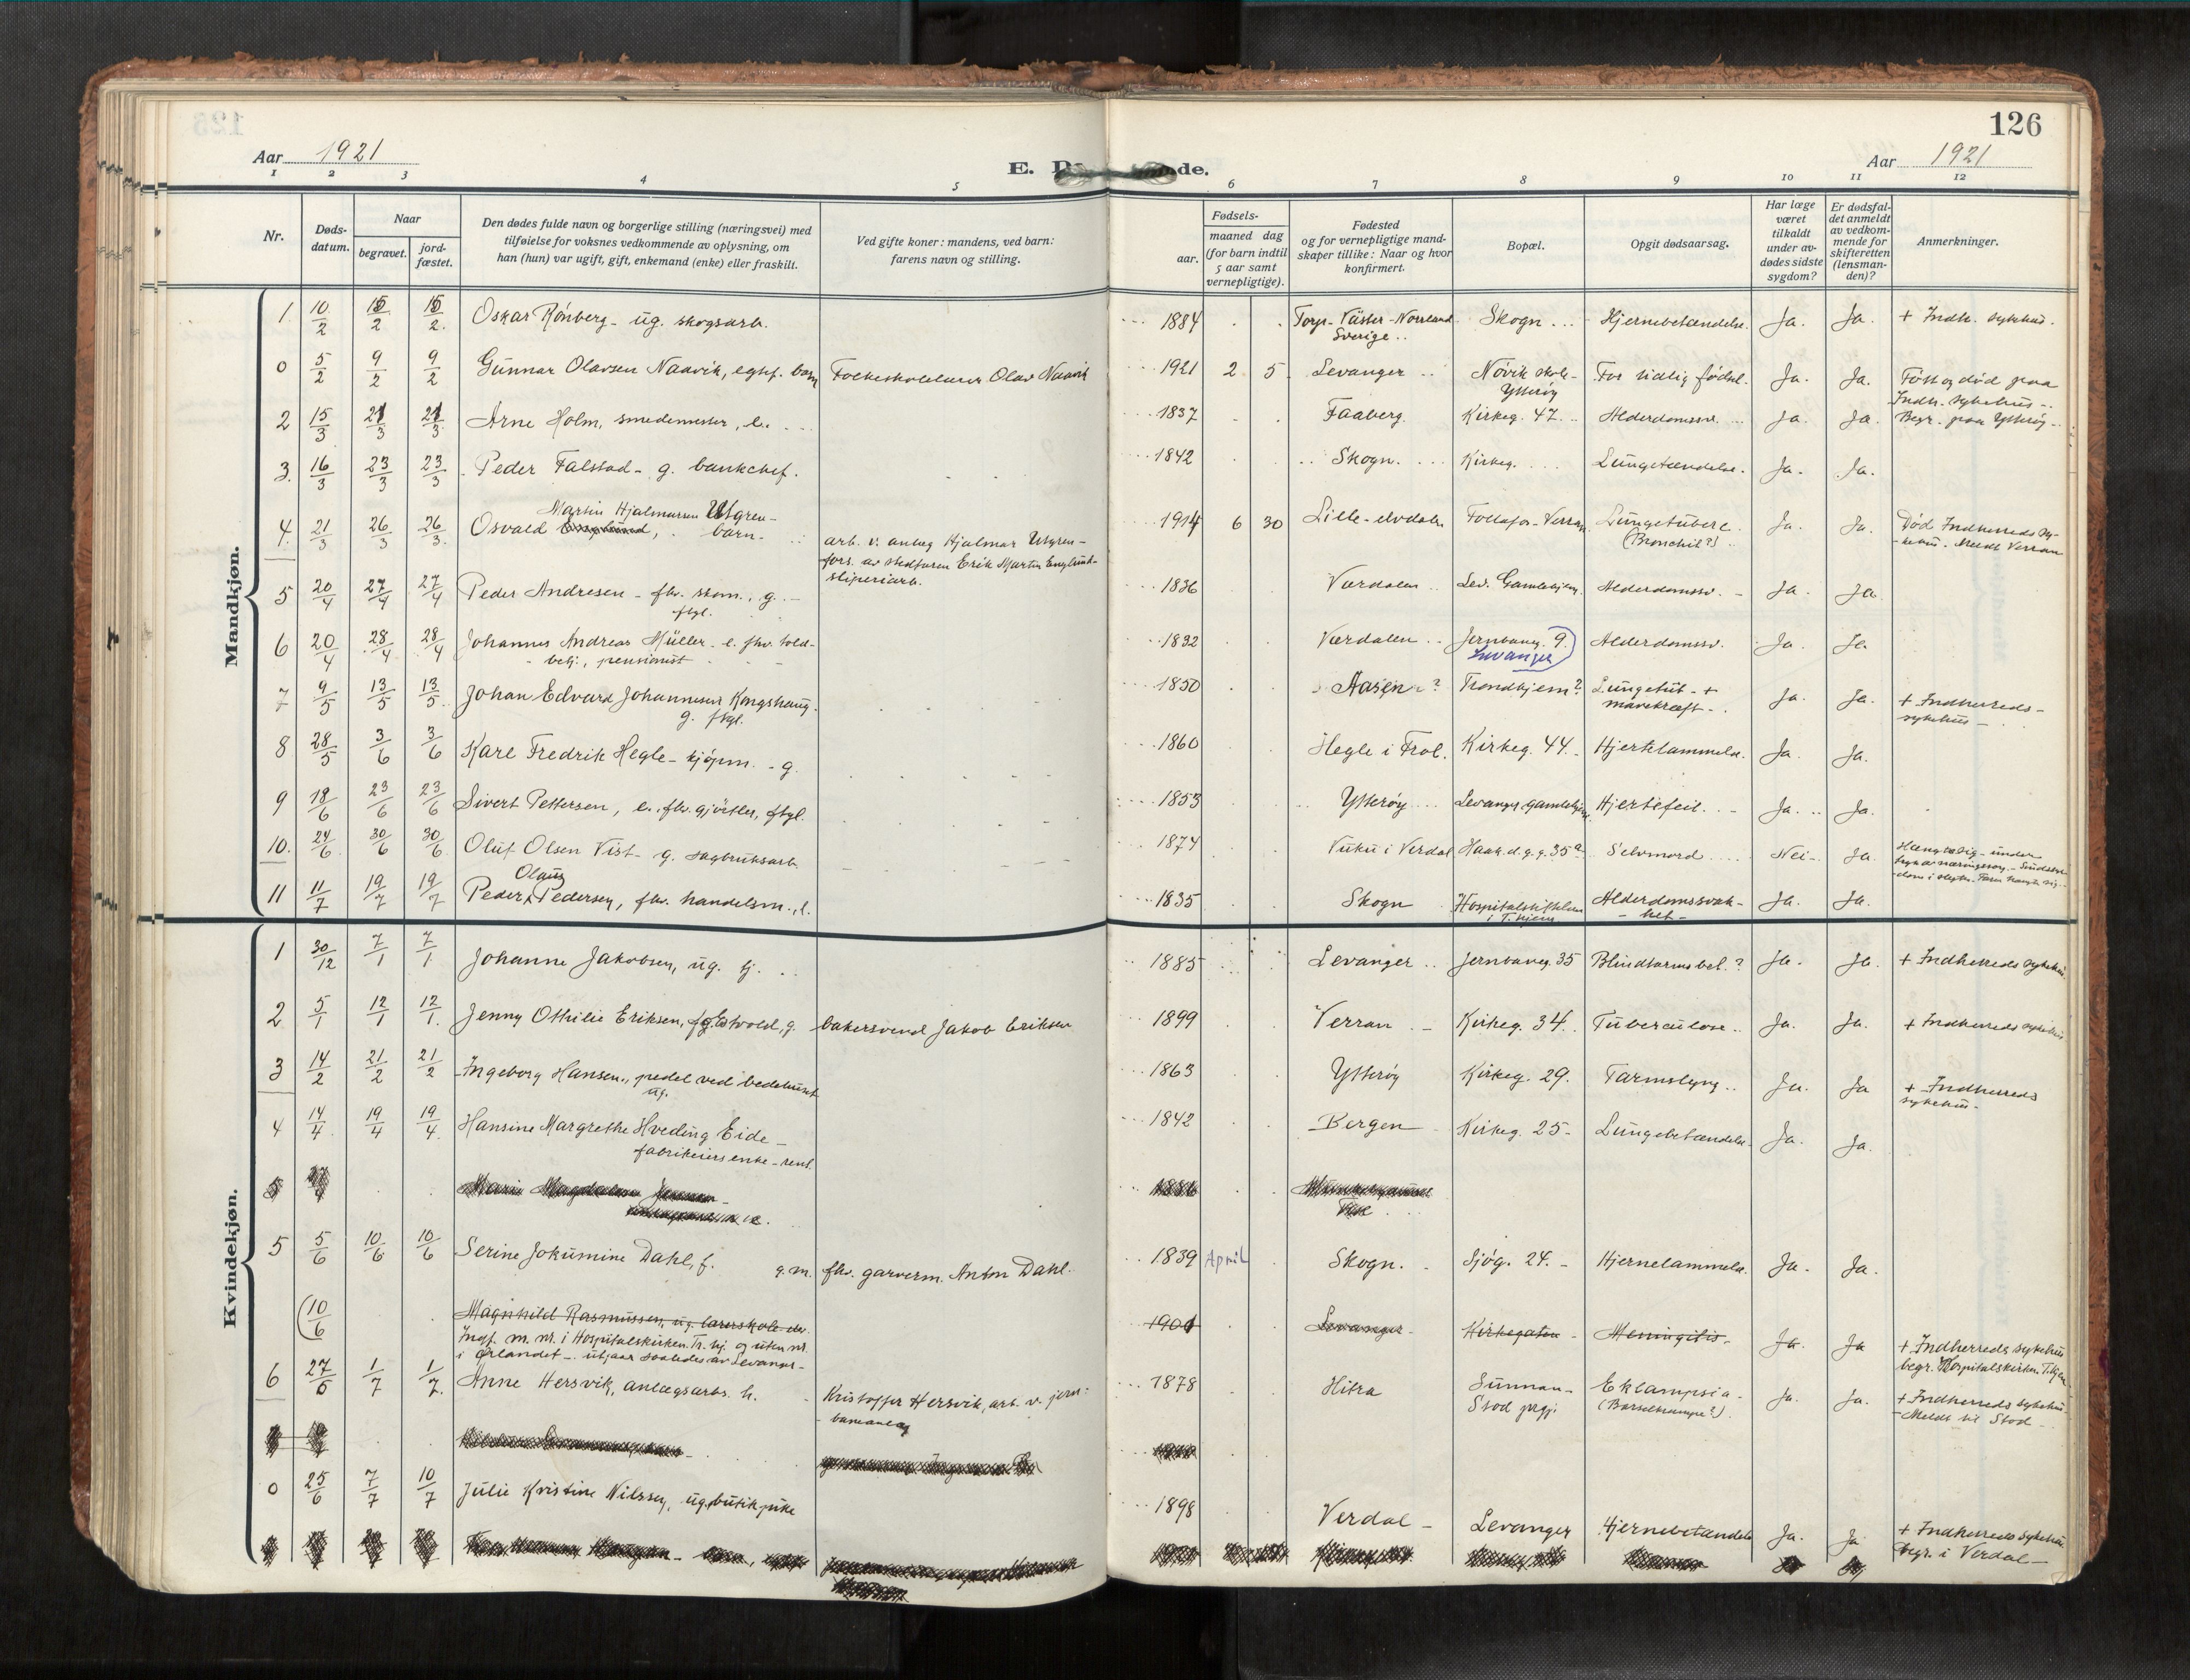 126
Aar 1921
E. D de.
Aar 1921
1 2 3 4 5 6 7 8 9 10 11 12
Nr.
Døds-
datum.
Naar
begravet.
jord-
fæstet.
Den dødes fulde navn og borgerlige stilling (næringsvei) med
tilføielse for voksnes vedkommende av oplysning, om
han (hun) var ugift, gift, enkemand (enke) eller fraskilt.
Ved gifte koner: mandens, ved barn:
farens navn og stilling.
Fødsels-
aar.
maaned dag
(for barn indtil
5 aar samt
vernepligtige).
Fødested
og for vernepligtige mand-
skaper tillike: Naar og hvor
konfirmert.
Bopæl.
Opgit dødsaarsag.
Har læge
været
tilkaldt
under av-
dødes sidste
sygdom?
Er dødsfal-
det anmeldt
av vedkom-
mende for
skifteretten
(lensman-
den)?
Anmerkninger.
Mandkjøn.
1 10/2 15/2 15/2. Oskar Rönberg - ug. skogsarb. 1884 Torp - Väster-Norrland Skogn Hjernebetændelse. Ja. Ja. + Indh. sykehus.
Sverige
0 5/2 9/2 9/2 Gunnar Olavsen Naavik, egtef. barn Folkeskolelærer Olav Naavik 1921 2 5 Levanger Növik skole- For tidlig födsel. Ja. Ja. Föst og död paa
Ytteröy Indh. sykehus -
2 15/3 21/3 21/3. Arne Holm, smedemester, e. 1837 Faaberg. Kirkeg. 47. Alderdomssv. Ja. Ja. Begr. paa Ytteröy
3. 16/3 23/3 23/3 Peder Falstad - g. bankchef. 1842 Skogn. Kirkeg. Lungetændelse. Ja. Ja.
Martin Hjalmarsen Utgren-
4. 21/3 26/3 26/3. Osvald barn. 1914 6 30 Lille-elvdalen Follafos-Verran Lungetuberc. Ja. Ja. Död Indherreds sy-
arb. v. anlæg Hjalmar Utgren - (Bronchit?) kehus. Meldt Verran
fors. av stedfaren Erik Martin Englund-
sliperiarb.
5 20/4 27/4 27/4 Peder Andresen - fhv. skom., g. 1836 Værdalen Lev. Gamlehjem. Alderdomssv. Ja. Ja
ftgl.
6 20/4 28/4 28/4 Johannes Andreas Müller - e. fhv. told- 1832 Værdalen Jernbaneg. 9. Alderdomssv. Ja. Ja
betj., pensionist Levanger
7 9/5 13/5 13/5. Johan Edvard Johannesen Kongshaug. 1850 Aasen? Trondhjem? Lungetub - + Ja. Ja. + Indherreds-
g. ftgl. mavekræft - sykehus -
8 28/5 3/6 3/6 Karl Fredrik Hegle - kjöpm. - g. 1860 Hegle i Frol. Kirkeg. 44. Hjertelammelse. Ja. Ja.
9 18/6 23/6 23/6 Sivert Pettersen, e. fhv. gjörtler, ftgl. 1853 Ytteröy Levanger gamlehjem Hjertefeil. Ja. Ja.
10. 24/6 30/6 30/6 Oluf Olsen Vist - g. sagbruksarb. 1874 Vuku i Verdal Haak. d. g. g. 35a Selvmord Nei - Ja. Hængte sig - under
Olaus
11 11/7 19/7 19/7 Peder Pedersen, fhv. handelsm., e. 1835 Skogn Hospitalsstiftelsen Alderdomssvak- Ja. Ja.
i T.hjem - het -
Kvindekjøn.
1 30/12 7/1 7/1 Johanne Jakobsen, ug. tj. 1885 Levanger Jernbaneg. 35 Blindtarmsbet.? Ja. Ja. + Indherreds sykehus.
2 5/1 12/1 12/1. Jenny Othilie Eriksen, g. bakersvend Jakob Eriksen 1899 Verran Kirkeg. 34. Tuberculose. Ja. Ja. + Indherreds sykehus
3 14/2 21/2 21/2 Ingeborg Hansen, pedel ved bedehuset 1863 Ytteröy Kirkeg. 29. Tarmslyng Ja. Ja + Indherreds
ug. sykehus -
4 14/4 19/4 19/4. Hansine Margrethe Hveding Eide - 1842 Bergen Kirkeg. 25 - Lungebetændelse. Ja. Ja.
fabrikeiers enke - rent.
5 Marie Magdalene Jensen 1886
5 5/6 10/6 10/6 Serine Jokumine Dahl, f. g. m. fhv. garverm. Anton Dahl. 1839 April Skogn. Sjög. 24. - Hjernelammelse. Ja. Ja.
(10/6 Magnhild Rasmussen, ug. lærerskole-elev. 1901 Levanger - Kirkegaten - Meningitis - Ja. Ja + Indherreds sykehus
Indf. m. nr. i Hospitalskirken Tr.hj. og uten nr. begr. Hospitalskirken T.hjem
i Ørlandet - utgaar saaledes av Levanger -
6 27/6 1/7 1/7. Anne Hersvik, anlægsarbs. h. Kristoffer Hersvik, arb. v. jern- 1878 Hitra Sunnan - Eklampsia - Ja. Ja. + Indherreds sykehus -
baneanlæg Stod prgj. (Barselkrampe?). - Meldt til Stod -
0 25/6 7/7 10/7 Julie Kristine Nilssen, ug. butikpike 1898 Verdal - Levanger Hjernebetændelse Ja. Ja + Indherreds sykehus
begr. i Verdal -